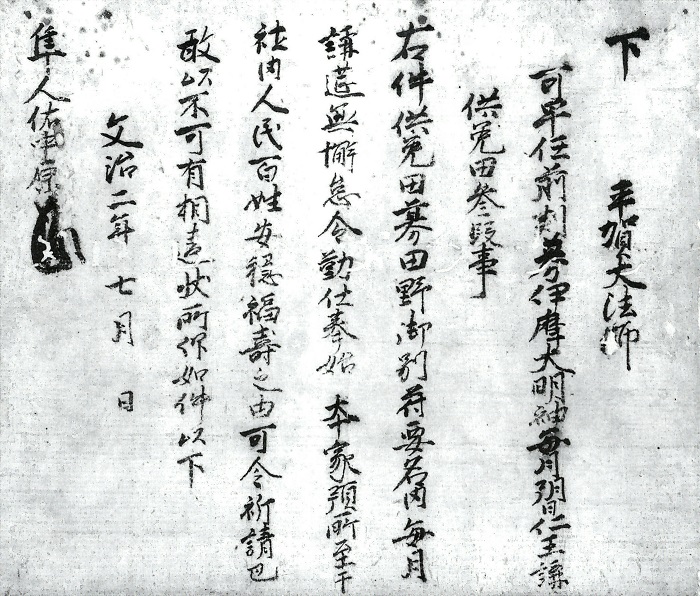 下 丰賀大法师
可早任前例募伊摩大明神每月晦日仁王講
供免田叁段事
右件供免田募田野御別符要名内每月
講莚無懈怠令勤仕奉始 本家預所至于
社内人民百姓安穏福壽之由可令祈請也
敢以不可有相違状所仰如件以下
文治二年七月 日
隼人佑中原